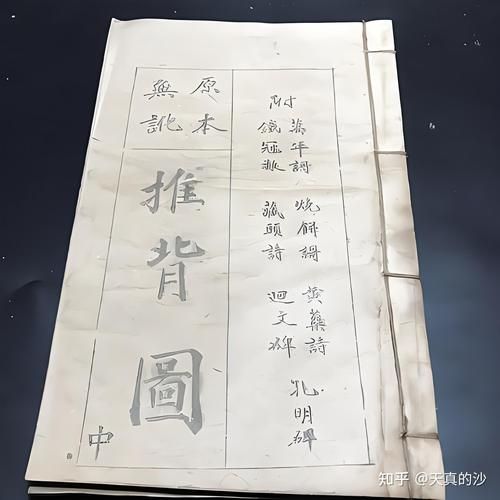 附
萬年謌 燒餅謌 黃蘗詩 孔明碑
鐵冠 藏頭詩 迴文碑
原本
無訛
推背圖
中
知乎 @天真的沙